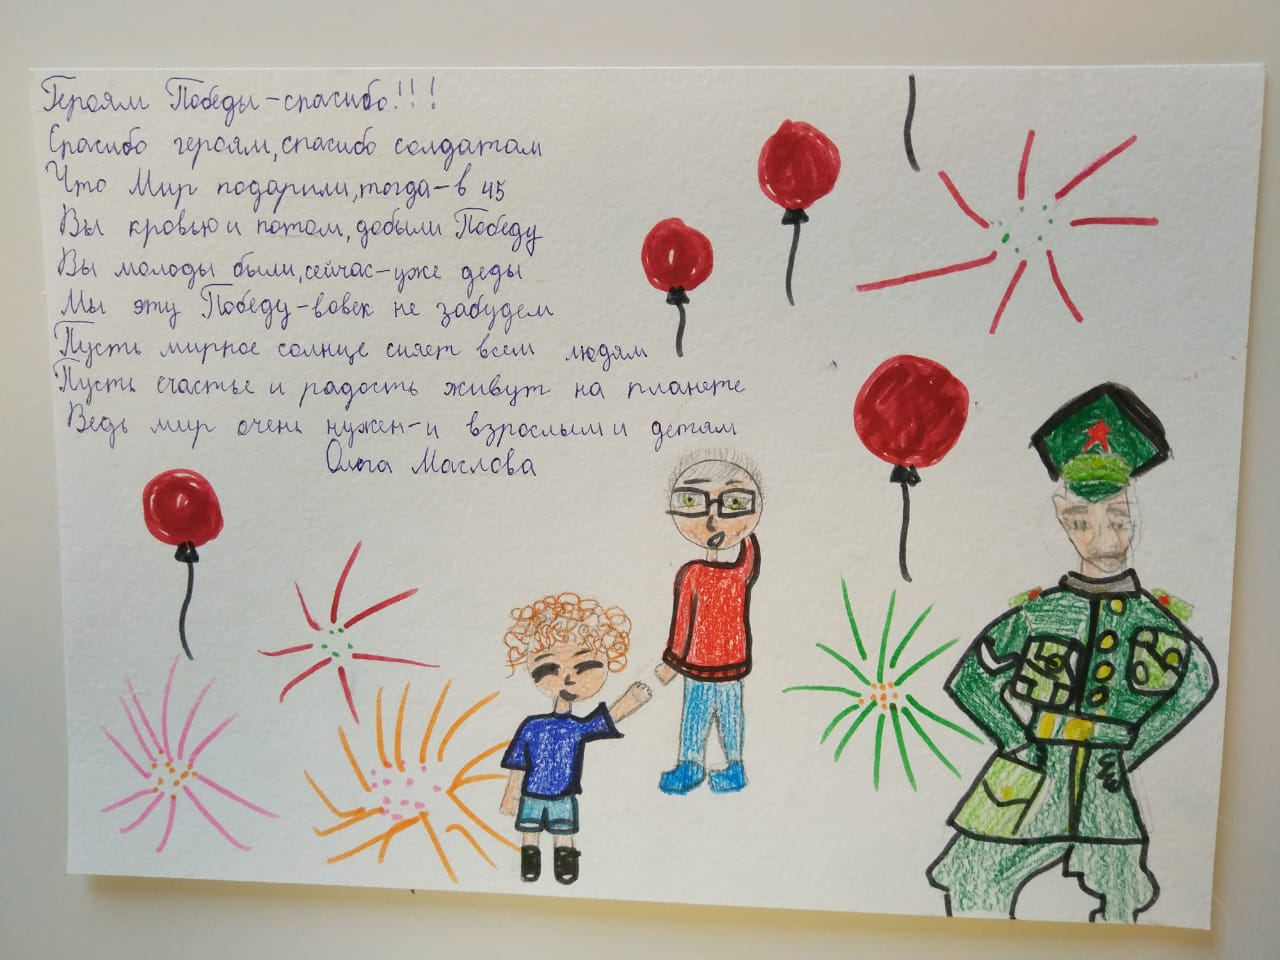 Героям Победы-спасибо!!!
Спасибо героям, спасибо солдатам
Что Мир подарили, тогда-в 45
Вы кровью и потом, добыли Победу
Вы молоды были, сейчас-уже деды
Мы эту Победу-вовек не забудем
Пусть мирное солнце сияет всем людям
Пусть счастье и радость живут на планете
Ведь мир очень нужен-и взрослым и детям
Ольга Маслова